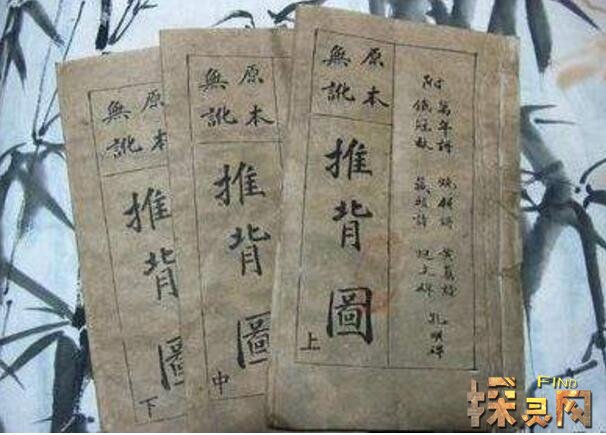 附
萬年詩 燒餅 黃蘗詩
鐵冠 藏頭詩 碑 孔明碑
原本
無訛
推背圖
上
原本
無訛
推背圖
中
原本
無訛
推背圖
下
FIND
探灵网